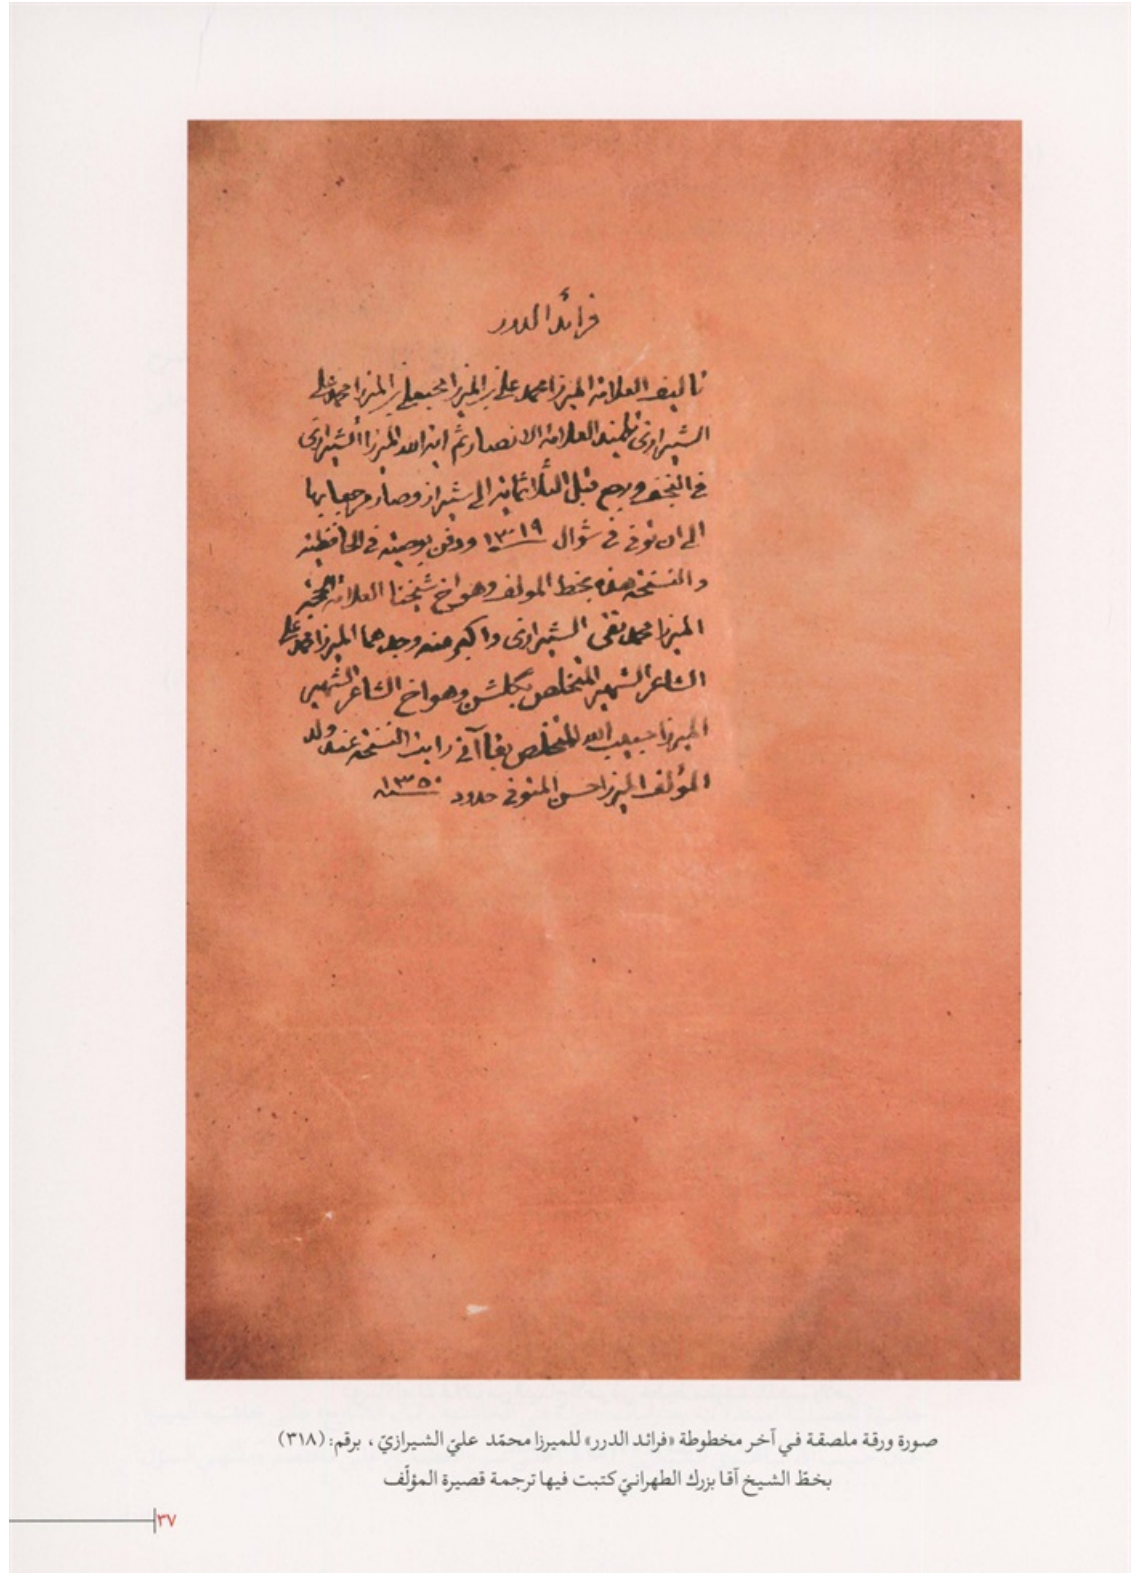 فرائد الدرر
تاليف العلامة الميرزا محمد علي بن الميرزا محبعلي بن الميرزا محمد علي
الشيرازي تلميذ العلامة الانصاري ثم اية الله الميرزا الشيرازي
في النجف ورجع قبل الثلاثمائة الى شيراز وصار مرجعا بها
الى ان توفي في شوال ١٣٠١٩ ودفن بوصيته في الحافظية
والنسخة هذه بخط المولف وهو اخ شيخنا العلامة الحجة
الميرزا محمد تقي الشيرازي واكبر منه وجدهما الميرزا محمد علي
الشاعر الشهير المتخلص بگلشن وهو اخ الشاعر الشهير
الميرزا حبيب الله المتخلص بقاآني رايت النسخة عند ولد
المؤلف الميرزا حسن المتوفي حدود ١٣٥٠
صورة ورقة ملصقة في آخر مخطوطة «فرائد الدرر» للميرزا محمّد عليّ الشيرازيّ ، برقم: (٣١٨)
بخطّ الشيخ آقا بزرك الطهرانيّ كتبت فيها ترجمة قصيرة المؤلّف
٣٧